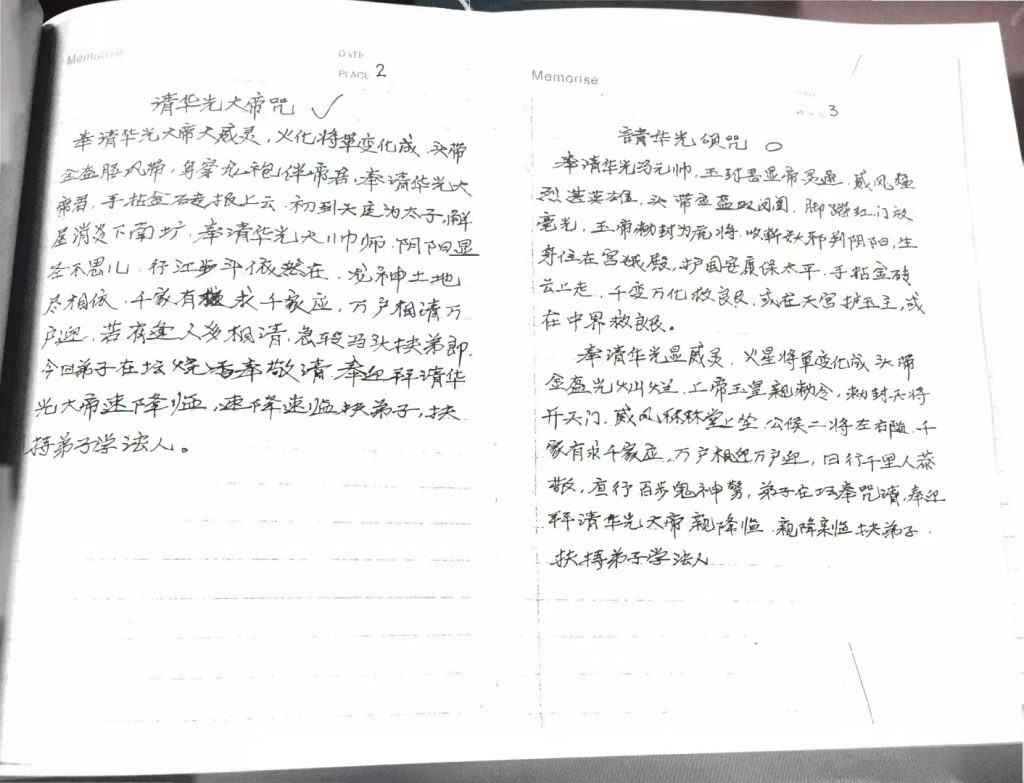 Memorise
DATE
PLACE 2
请华光大帝咒 ✓
奉请华光大帝大威灵，火化将軍变化成，头带
金盔 风帶，身穿 袍伴帝君，奉请华光大
帝君，手拈金砖 报上云．初到天庭为太子，
消灾下南 ．奉请华光大 帅师．阴阳显
不思 ．行江步斗依然在．龙神土地
尽相依．千家有 求千家应，万户相请万
户迎．若有 人多相请，急 马头扶弟郎．
今日弟子在坛烧香奉敬请．奉迎拜请华
光大帝速降临，速降速临扶弟子，扶
持弟子学法人。
Memorise
3
請华光颂咒 ○
奉请华光马元帅，玉封吾显帝灵通．威风强
烈甚英雄．头带金盔 ．脚踏红门放
毫光，玉帝勅封为 将．收斩妖邪判阴阳，生
身住在宫 殿，护国安康保太平．手拈金砖
云上走．千变万化救良民，或在天宫护玉主，或
在中界救良民。
奉请华光显威灵，火星将軍变化成 头帶
金盔光灿烂．上帝玉皇親勅令．勅封天将
开天门．威风林林堂上坐．公候二将左右随．千
家有求千家应，万户相迎万户迎，日行千里人恭
敬，夜行百步鬼神驚，弟子在坛奉咒请，奉迎
拜请华光大帝親降临．親降来临扶弟子．
扶持弟子学法人